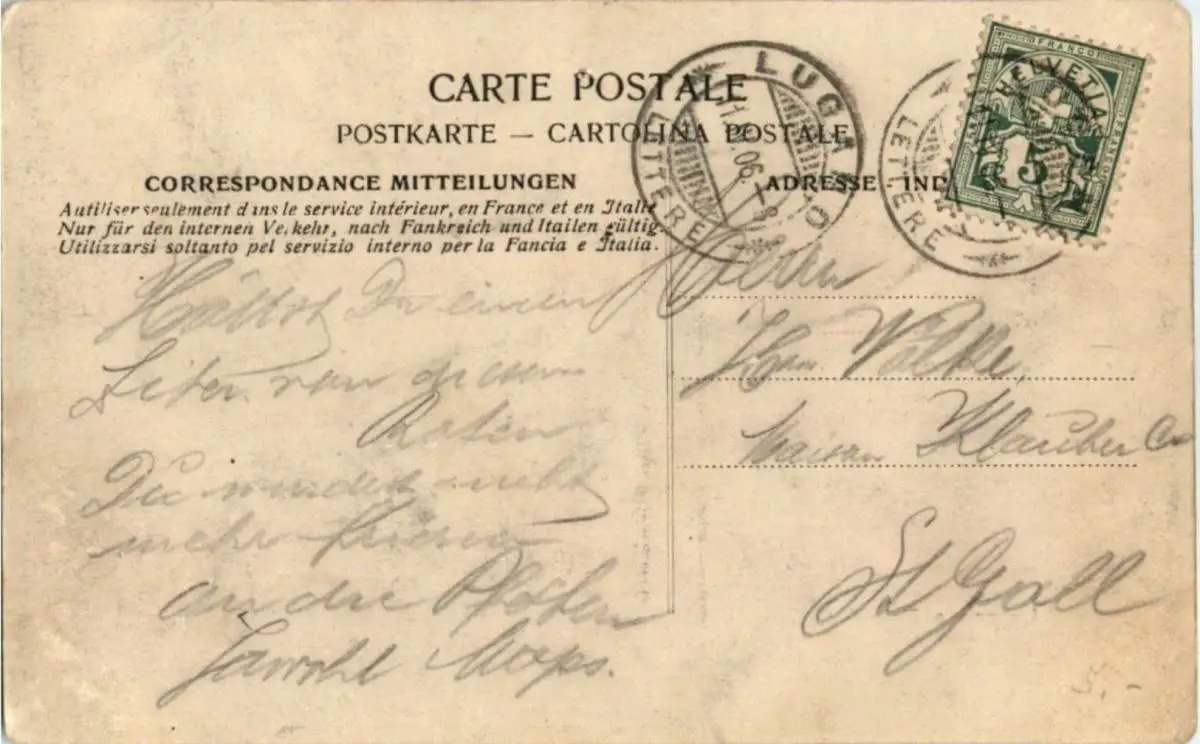 CARTE POSTALE
POSTKARTE — CARTOLINA POSTALE
CORRESPONDANCE MITTEILUNGEN
ADRESSE IND
A utiliser seulement dans le service intérieur, en France et en Italie
Nur für den internen Verkehr, nach Fankreich und Itailen gültig.
Utilizzarsi soltanto pel servizio interno per la Fancia e Italia.
LUGANO
LETTERE
LETTERE
HELVETIA
FRANCO
5
Hättst Du einen
Liter von diesem
Roten
Du würdest nicht
mehr frieren
an die Pfoten
Jawohl Mops.
Herrn
Volke,
Maison Klauber Co
St. Gall
5.-